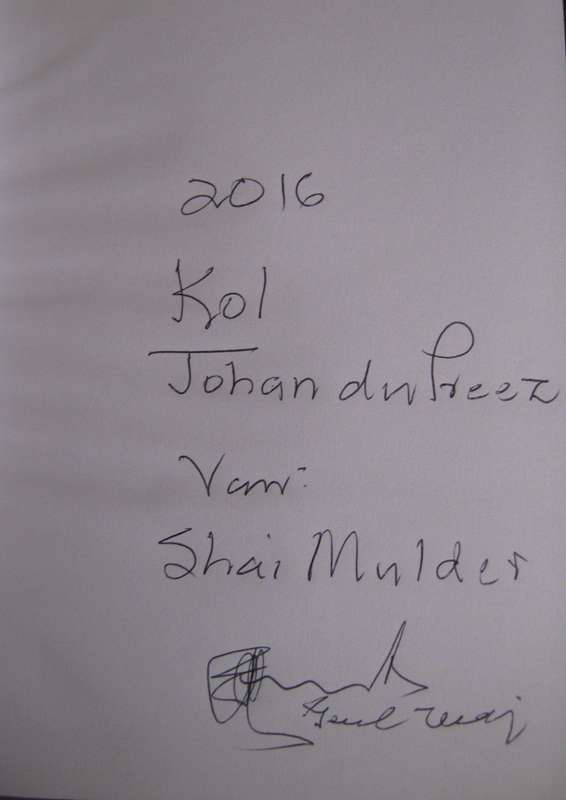 2016
Kol
Johan du Preez
Van:
Shai Mulder